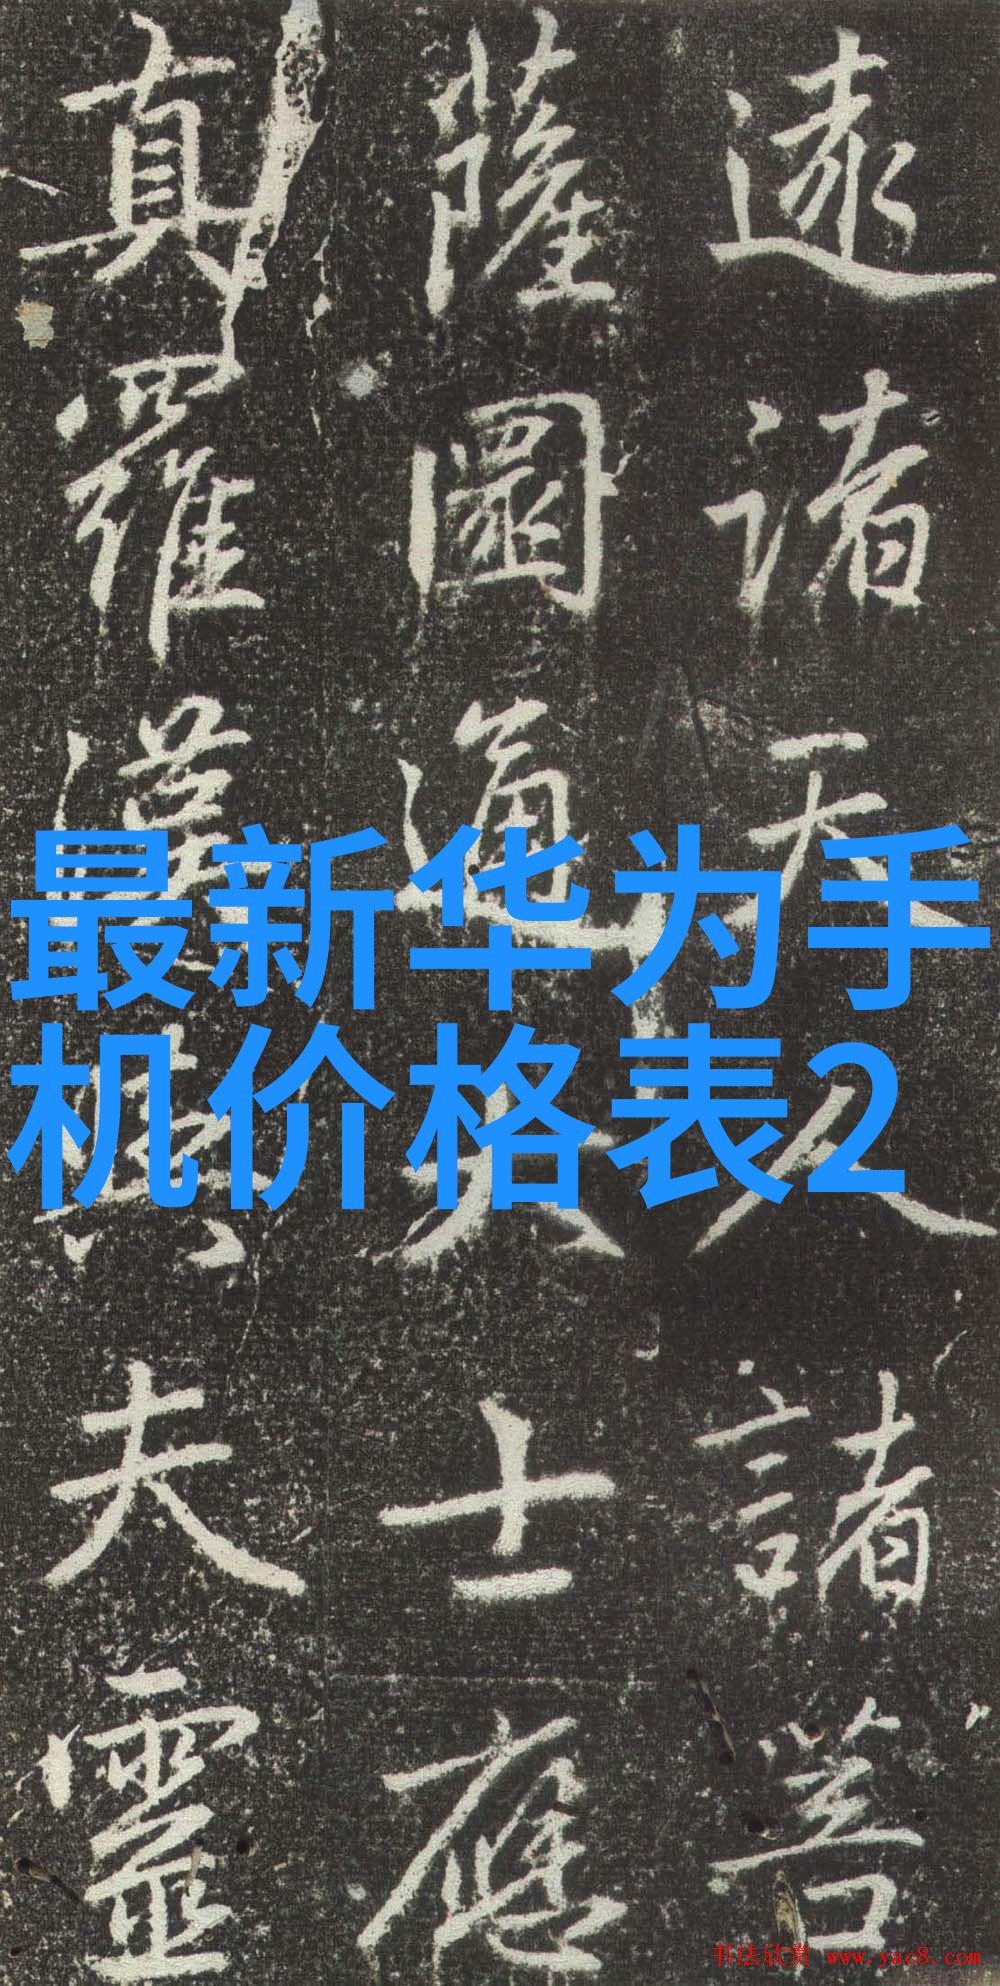 逮諸天人諸菩
薩圓通大士應
真羅漢與夫靈
最新华为手
机价格表2
书法欣赏 www.yac8.com